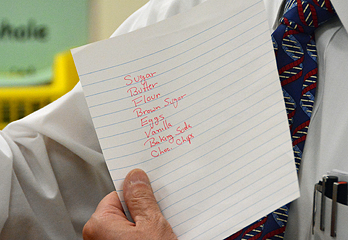 hole
Sugar
Butter
Flour
Brown Sugar
Eggs
Vanilla
Baking Soda
Choc Chips